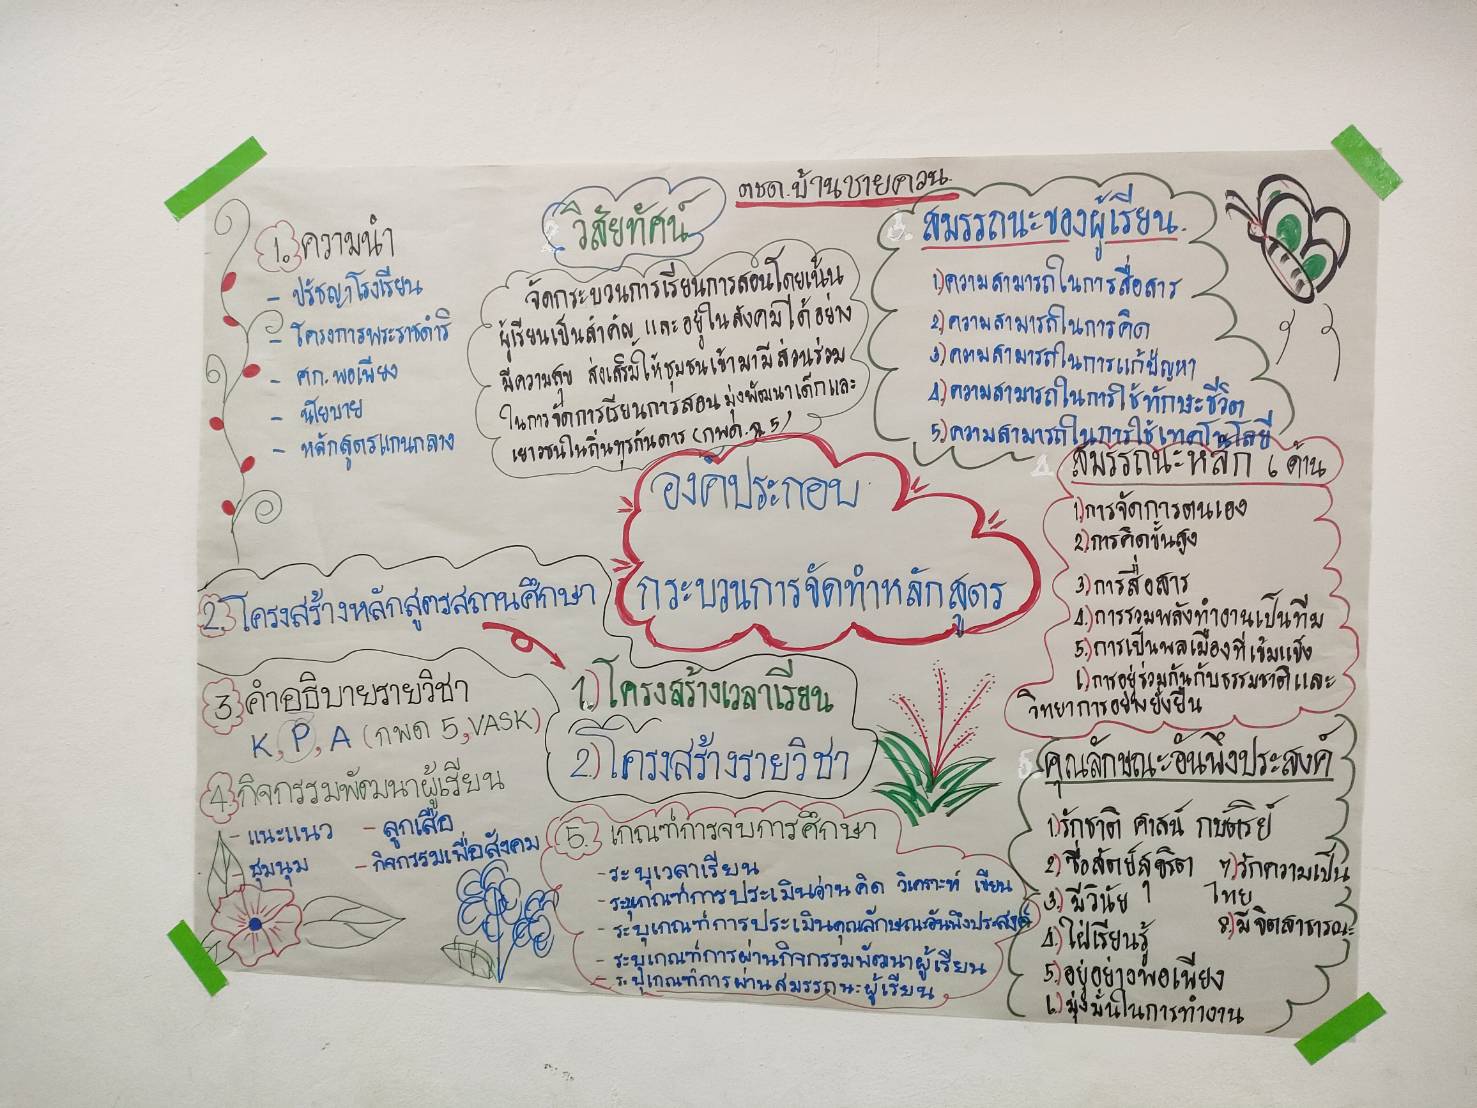 ตชด.บ้านชายควน.
1. ความนำ
- ปรัชญาโรงเรียน
- โครงการพระราชดำริ
- ศก.พอเพียง
- นโยบาย
- หลักสูตรแกนกลาง
วิสัยทัศน์
จัดกระบวนการเรียนการสอนโดยเน้น
ผู้เรียนเป็นสำคัญ และอยู่ในสังคมได้อย่าง
มีความสุข ส่งเสริมให้ชุมชนเข้ามามีส่วนร่วม
ในการจัดการเรียนการสอน มุ่งพัฒนาเด็กและ
เยาวชนในถิ่นทุรกันดาร (กพด.ฉ.5)
3. สมรรถนะของผู้เรียน.
1) ความสามารถในการสื่อสาร
2) ความสามารถในการคิด
3) ความสามารถในการแก้ปัญหา
4) ความสามารถในการใช้ทักษะชีวิต
5) ความสามารถในการใช้เทคโนโลยี
องค์ประกอบ
กระบวนการจัดทำหลักสูตร
4. สมรรถนะหลัก 6 ด้าน
1) การจัดการตนเอง
2) การคิดขั้นสูง
3) การสื่อสาร
4.) การรวมพลังทำงานเป็นทีม
5.) การเป็นพลเมืองที่เข้มแข็ง
6.) การอยู่ร่วมกันกับธรรมชาติและ
วิทยาการอย่างยั่งยืน
2. โครงสร้างหลักสูตรสถานศึกษา
1) โครงสร้างเวลาเรียน
2) โครงสร้างรายวิชา
3 คำอธิบายรายวิชา
K, P, A (กพด 5, VASK)
4. กิจกรรมพัฒนาผู้เรียน
- แนะแนว - ลูกเสือ
- ชุมนุม - กิจกรรมเพื่อสังคม
5. เกณฑ์การจบการศึกษา
- ระบุเวลาเรียน
- ระบุเกณฑ์การประเมินอ่าน คิด วิเคราะห์ เขียน
- ระบุเกณฑ์การประเมินคุณลักษณะอันพึงประสงค์
- ระบุเกณฑ์การผ่านกิจกรรมพัฒนาผู้เรียน
- ระบุเกณฑ์การผ่านสมรรถนะผู้เรียน
5. คุณลักษณะอันพึงประสงค์
1) รักชาติ ศาสน์ กษัตริย์
2) ซื่อสัตย์สุจริต 7) รักความเป็น
3.) มีวินัย ไทย
4) ใฝ่เรียนรู้ 8.) มีจิตสาธารณะ
5.) อยู่อย่างพอเพียง
6.) มุ่งมั่นในการทำงาน